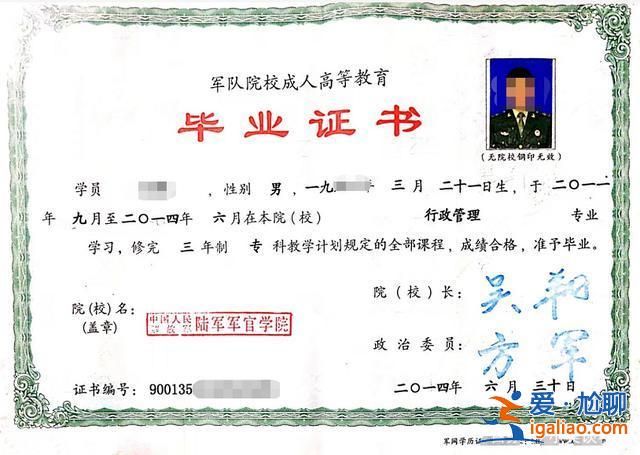 军队院校成人高等教育
毕业证书
(无院校钢印无效)
学员 ,性别 男,一九 年 三 月 二十一日生,于 二〇一一
年 九 月至 二〇一四年 六 月在本院(校) 行政管理 专业
学习,修完 三 年制 专 科教学计划规定的全部课程,成绩合格,准予毕业。
院(校)名:
(盖章)
中国人民
解放军
陆军军官学院
院(校)长: 吴翔
政治委员: 方军
证书编号: 900135
二〇一四年 六 月 三十日
爱·尬聊
igaliao.com
军网学历